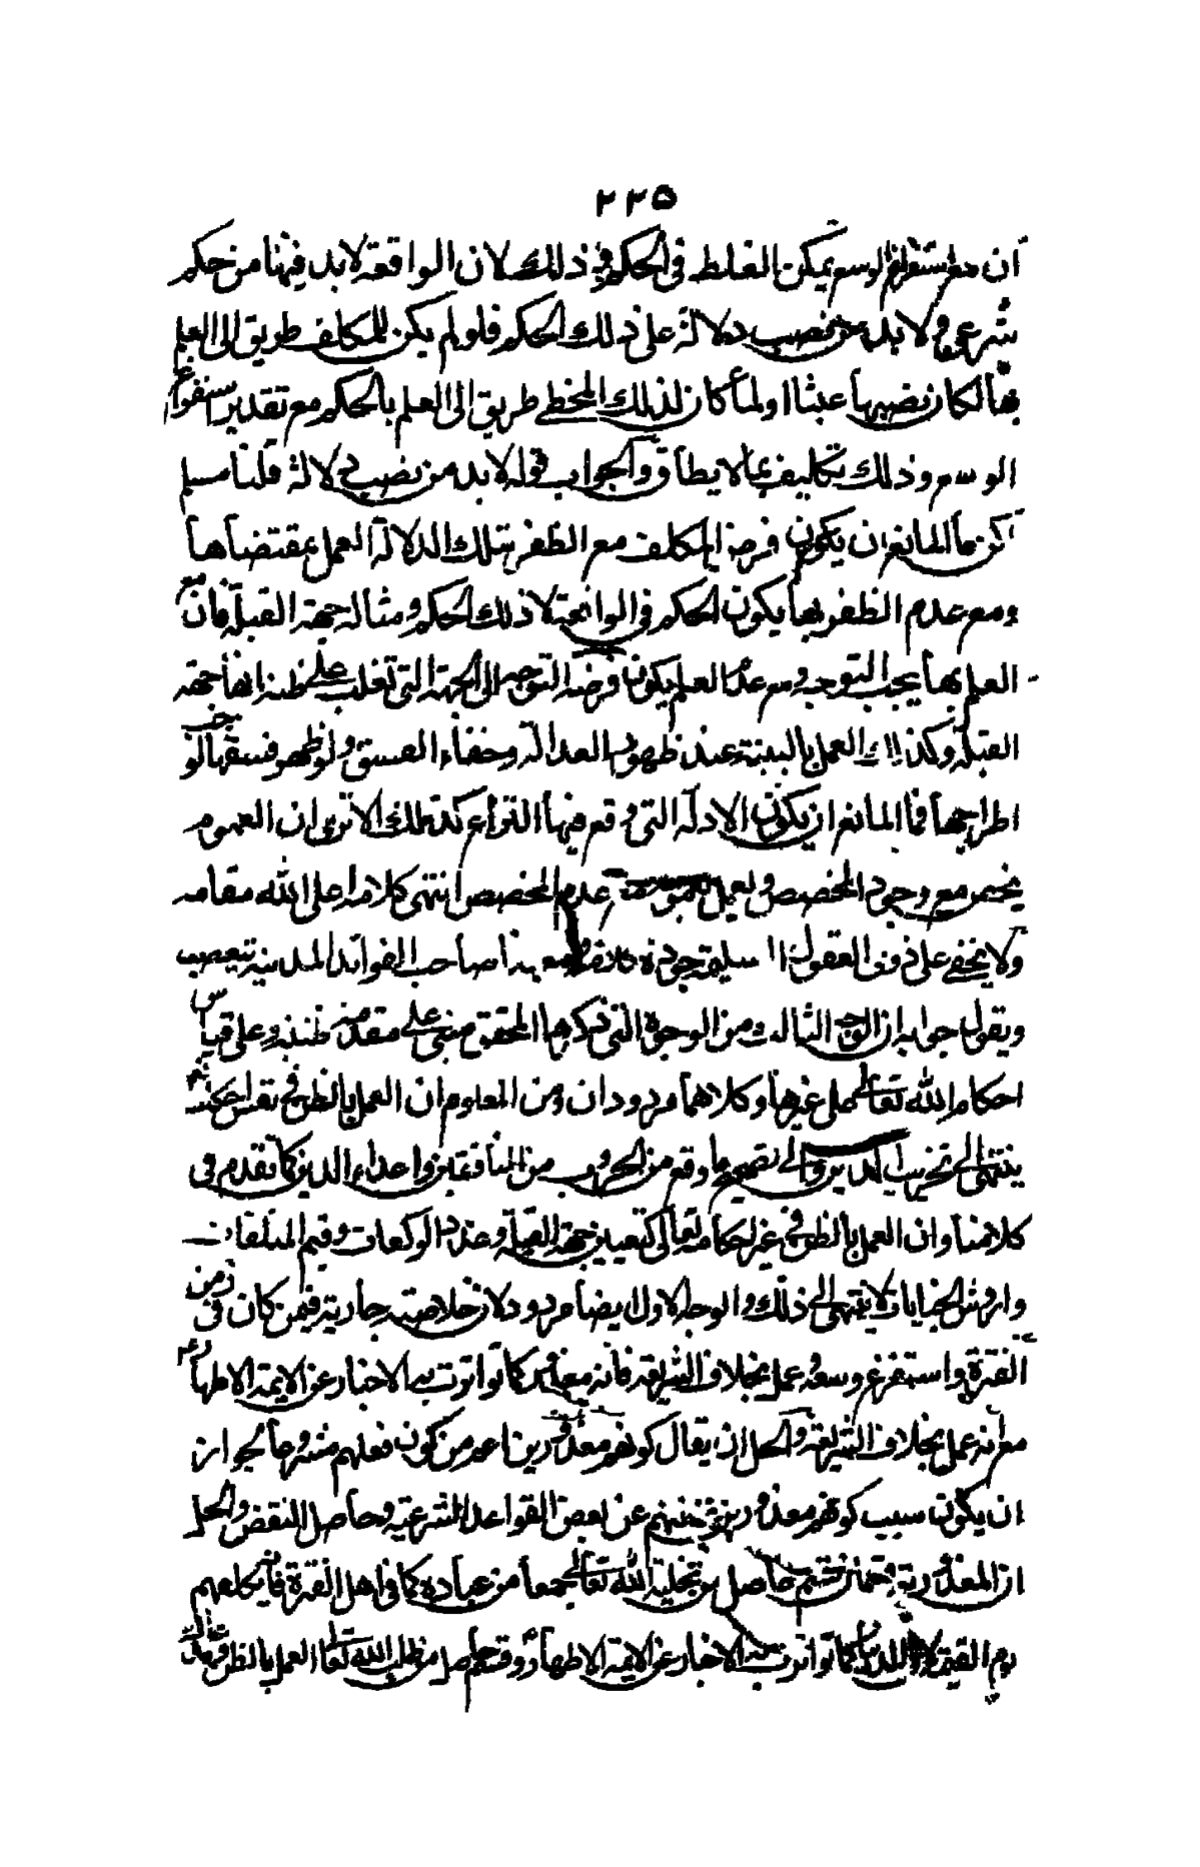 ٢٢٥
ان مع استفراغ الوسع يمكن الغلط في الحكم في ذلك لان الواقعة لابد فيها من حكم
شرعي ولابد من نصب دلالة على ذلك الحكم فلو لم يكن للمكلف طريق الى العلم
بها لكان نصبها عبثا ولما كان لذلك المخطئ طريق الى العلم بالحكم مع تقدير استفراغ
الوسع وذلك تكليف بما لا يطاق والجواب قوله لابد من نصب دلالة قلنا مسلم
لكن ما المانع ان يكون فرض المكلف مع الظفر بتلك الدلالة العمل بمقتضاها
ومع عدم الظفر بها يكون الحكم في الواقعة لا ذلك الحكم ومثاله جهة القبلة فان مع
العلم بها يجب التوجه ومع عدم العلم يكون فرضه التوجه الى الجهة التي تغلب على ظنه انها جهة
القبلة وكذلك العمل بالبينة عند ظهور العدالة وخفاء الفسق ولو ظهر فسقها لوجب
اطراحها فما المانع ان يكون الادلة التي وقع فيها النزاع كذلك الا ترى ان العموم
يخص مع وجود المخصص ويعمل بعمومه مع عدم المخصص انتهى كلامه اعلى الله مقامه
ولا يخفى على ذوي العقول السليمة جودة كلام صاحب الفوائد المدنية
ويقول جوابه ان الوجه الثالث من الوجوه التي ذكرها المحقق مبني على مقدمة ظنية وعلى قياس
احكام الله تعالى على غيرها وكلاهما مردودان ومن المعلوم ان العمل بالظن في نفس احكامه تعالى
ينتهي الى تخريب الدين والى تصحيح ما وقع من الحروب من المنافقين واعداء الدين كما تقدم في
كلامنا وان العمل بالظن في غير احكامه تعالى كتعيين جهة القبلة وعدد الركعات وقيم المتلفات
واروش الجنايات لا ينتهي الى ذلك والوجه الاول ايضا مردود لان خلاصته جارية فيمن كان في زمن
الفترة واستفرغ وسعه وعمل بخلاف الشريعة فانه معذور كما تواترت به الاخبار عن الائمة الاطهار ع
مع انه عمل بخلاف الشريعة والحل ان يقال كونهم معذورين اعم من كون فعلهم مشروعا لجواز
ان يكون سبب كونهم معذورين غفلتهم عن بعض القواعد الشرعية وحاصل النقض والحل
ان المعذورية قسمان قسم حاصل من تخلية الله تعالى جمعا من عباده كما في اهل الفترة فانه يكلفهم
يوم القيمة كما تواترت به الاخبار عن الائمة الاطهار وقسم حاصل من طلب الله تعالى العمل بالظن